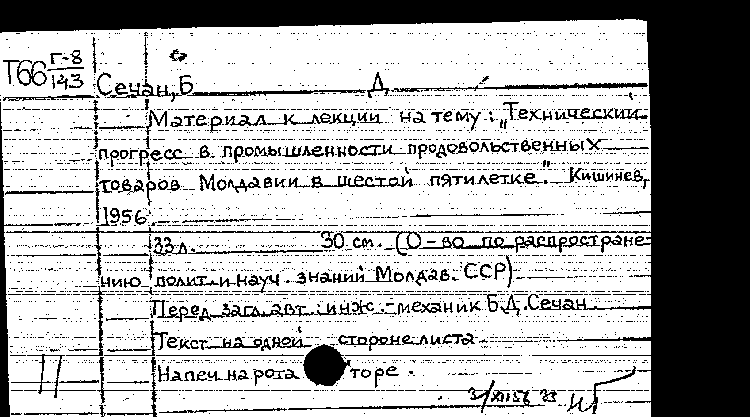 Т66 Г-8
143
Сечан, Б Д
Материал к лекции на тему: „Технический
прогресс в промышленности продовольственных
товаров Молдавии в шестой пятилетке". Кишинев,
1956.
33 л. 30 см. (О-во по распростране-
нию полит. и науч. знаний Молдав. ССР)
Перед загл. авт.: инж.-механик Б.Д. Сечан
Текст на одной стороне листа
Напеч на рота торе.
11